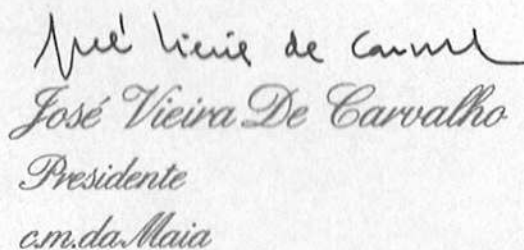 José Vieira de Carvalho
José Vieira De Carvalho
Presidente
c.m.da Maia